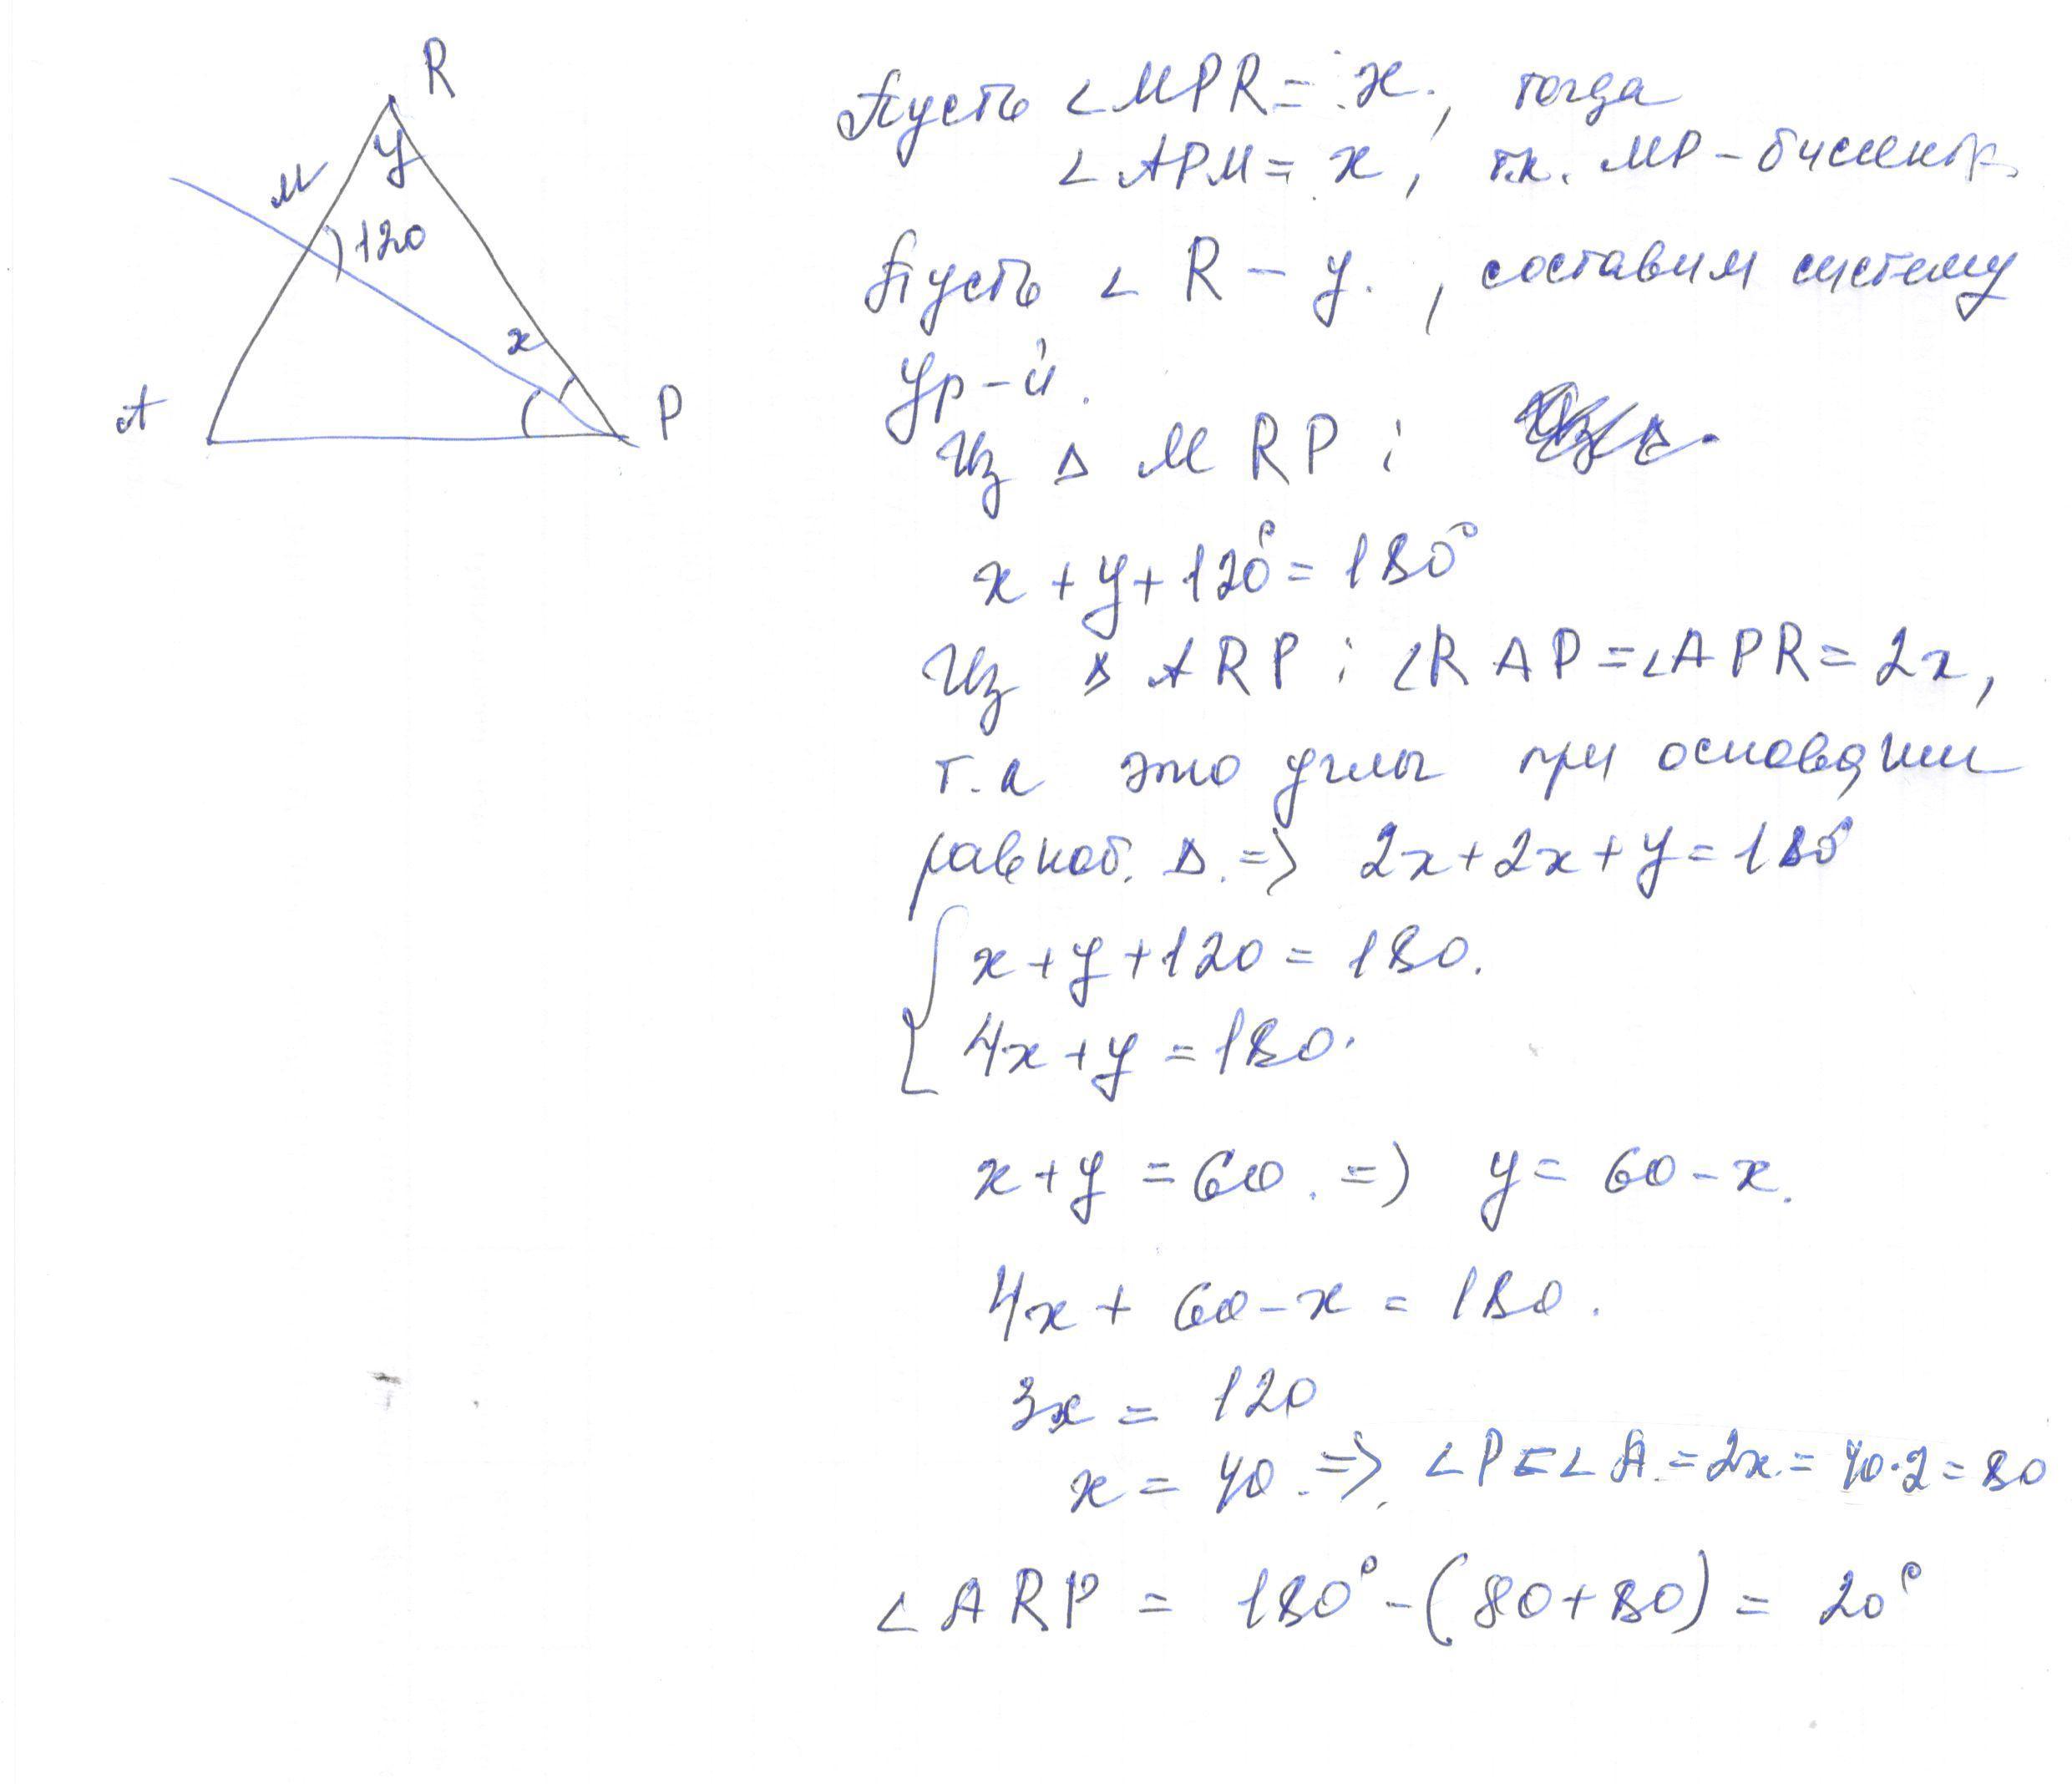 R
y
M
120
x
A
P
Пусть ∠MPR = x., тогда
∠APM = x, т.к. MP - биссектр.
Пусть ∠ R - y., составим систему
ур-й.
Из Δ MRP:
x + y + 120° = 180°
Из Δ ARP: ∠RAP = ∠APR = 2x,
т.к это углы при основании
равноб. Δ. => 2x + 2x + y = 180°
x + y + 120 = 180.
4x + y = 180.
x + y = 60. => y = 60 - x.
4x + 60 - x = 180.
3x = 120
x = 40. => ∠P = ∠A = 2x = 40·2 = 80
∠ARP = 180° - (80 + 80) = 20°